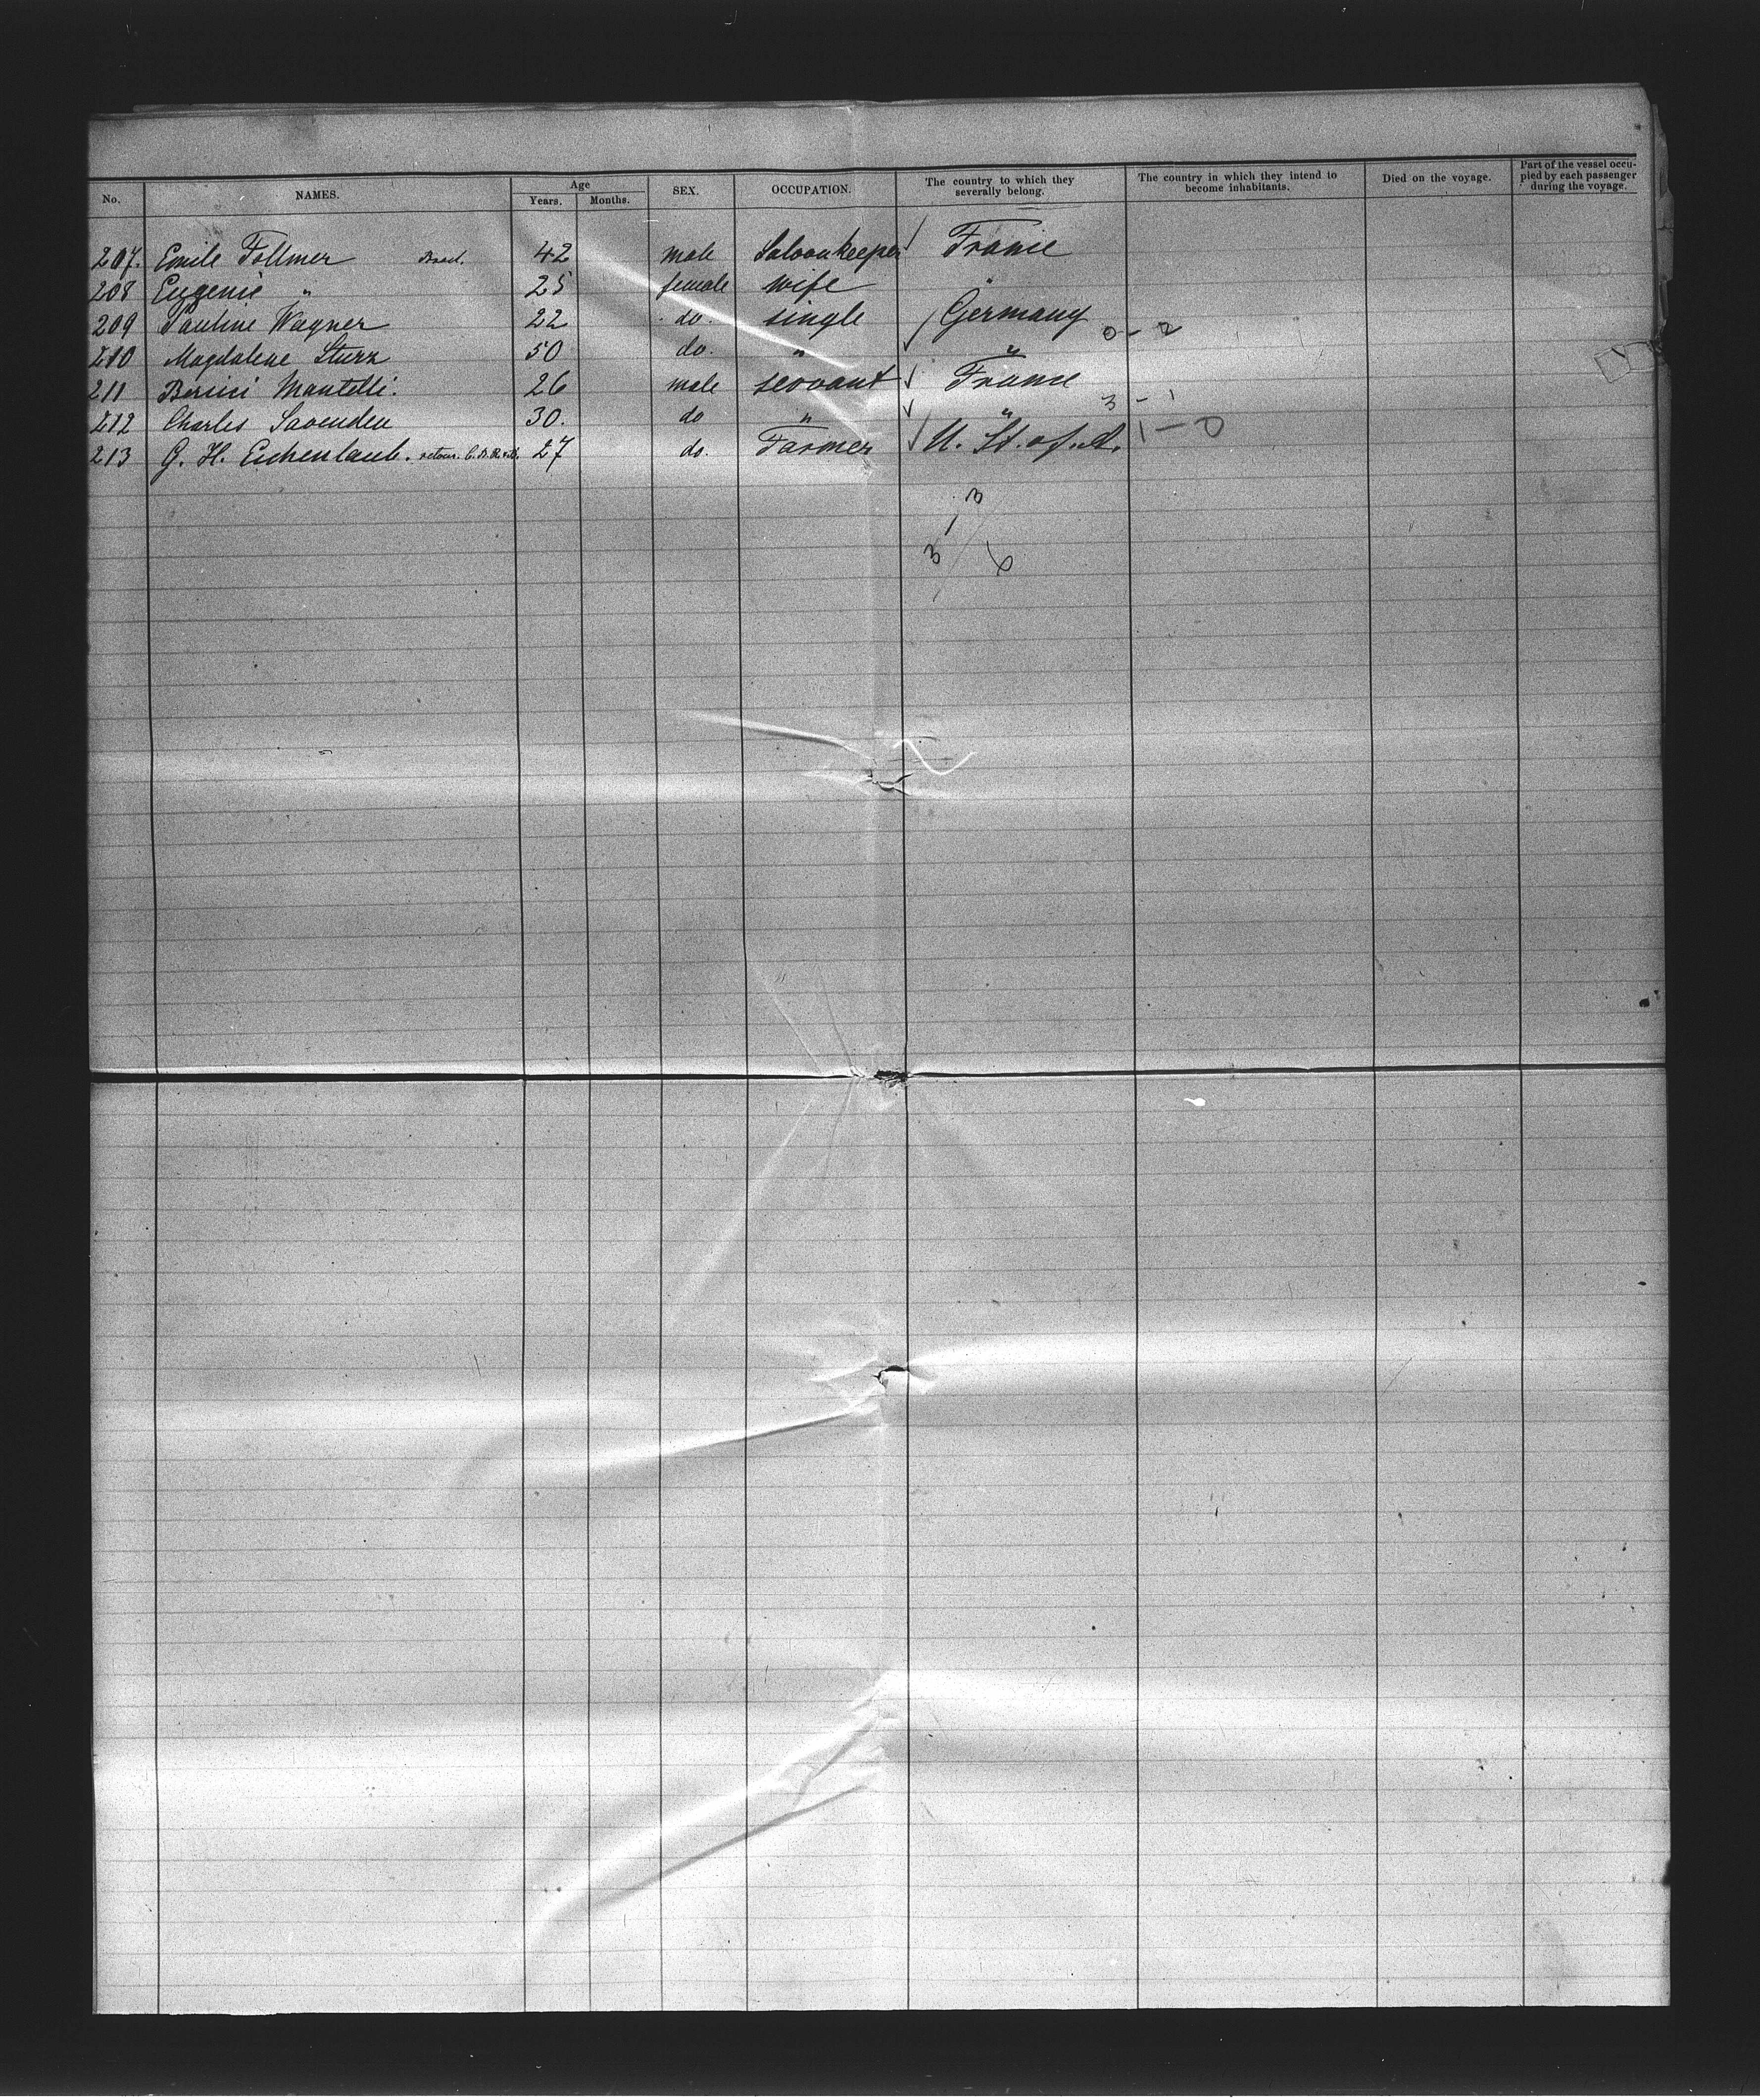 No. NAMES. Age Years. Months. SEX. OCCUPATION. The country to which they severally belong. The country in which they intend to become inhabitants. Died on the voyage. Part of the vessel occupied by each passenger during the voyage.
207. Emile Follmer 42 male Saloonkeeper France
208 Eugenie " 25 female wife
209 Pauline Wagner 22 do. single Germany
0 - 2
210 Magdalene Sturz 50 do. " "
211 Mantelli. 26 male servant France
3 - 1
212 Charles 30. do " "
213 G. H. Eichenlaub. retour. 27 do. Farmer U. St. of A. 1 - 0
3
1
3 / 6